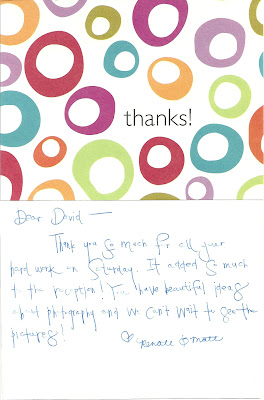 thanks!
Dear David —
Thank you so much for all your
hard work on Saturday. It added so much
to the reception! You have beautiful ideas
about photography and we can't wait to see the
pictures!
♡ Renate & Matt